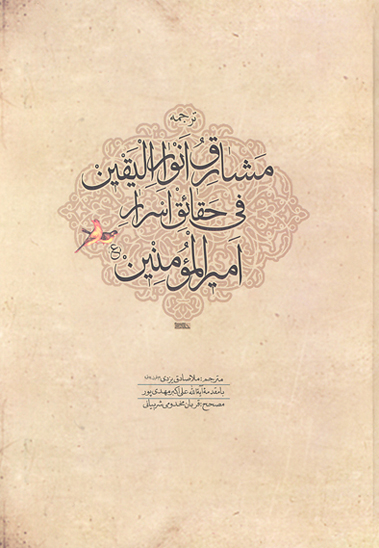 ترجمه
مشارق انوار الیقین
فی حقائق اسرار
امیرالمؤمنین ع
مترجم: ملا صادق یزدی
با مقدمه آیة الله علی اکبر مهدی پور
مصحح: قربان مخدومی شربیانی